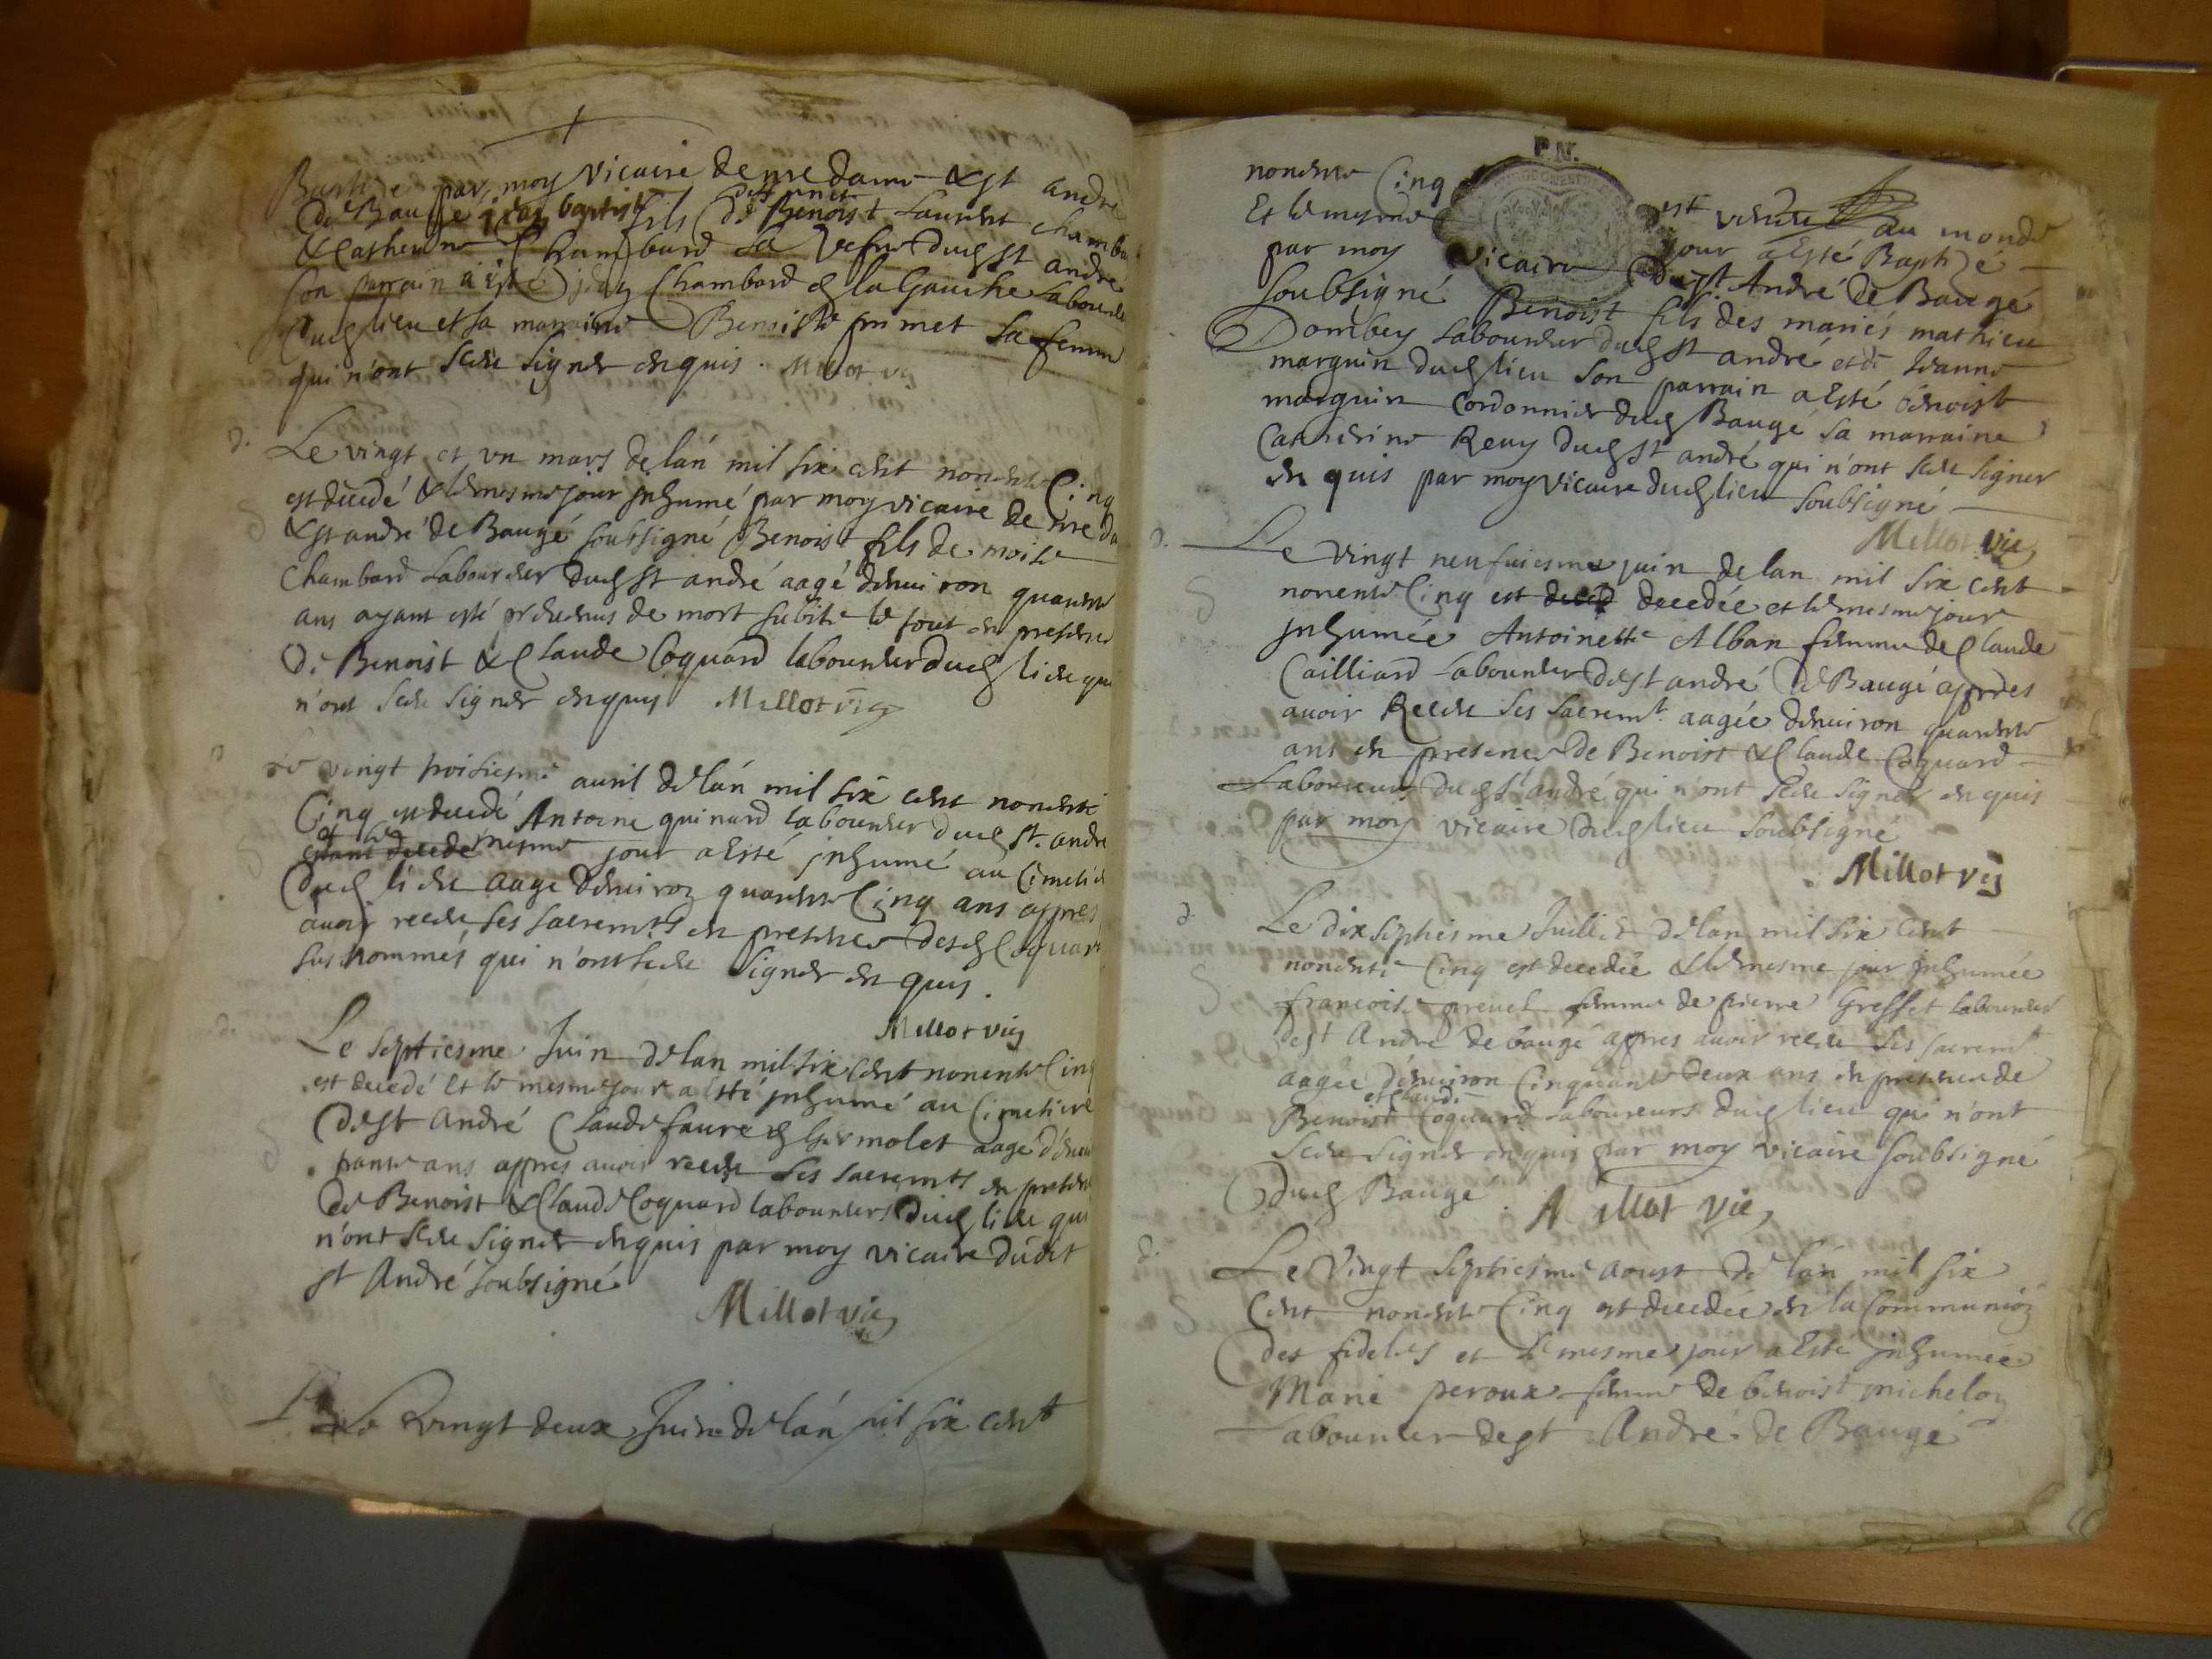 Baptizé par moy vicaire de nre dame & St andré
de Baugé jean baptiste fils de deffunct Benoist Laurent chamba
& Catherine Chambard sa vefve dud St andré
son parrain a Esté jean Chambard d la Gauche Laboure
dud lieu et sa marraine Benoiste primet sa femme
qui n'ont sceu signer enquis. Millot vic
d. Le vingt et vn mars de lán mil six cent nonente Cinq
est decedé & le mesme jour jnhumé par moy vicaire de nre da
& St andré de Baugé soubsigné Benoist fils de moise
Chambard Laboureur dud St andré aagé denuiron quarente
ans ayant esté preuenus de mort subite le tout en presence
de Benoist & Claude Coquard laboureur dud lieu qui
n'ont sceu signer enquis Millot vic
Le vingt troisiesme auril de lán mil six cent nonente
Cinq est decedé Antoine quinard laboureur dud St. andre
et le
estant decede mesme jour a Esté jnhumé au Cimetie
dud lieu aagé denuiron quarente Cinq ans appres
auoir receu ses sacremts en presence desd Coquard
sus nommés qui n'ont sceu signer enquis.
Millot vic
d. Le septiesme Juin de lan mil six Cent nonente Cinq
est decedé Et le mesme jour a Esté jnhumé au Cimetiere
de St andré Claude faure d hermolet aagé d'enui
trante ans appres auoir receu ses sacremts en presen
de Benoist & Claude Coquard laboureurs dud lieu qui
n'ont sceu signer enquis par moy vicaire dudit
St André soubsigné
Millot vic
Le vingt deux Juin de lán mil six cent
P.N.
nonente Cinq est venu au monde
Et le mesme jour a Esté Baptizé
par moy vicaire de St. André de Baugé
soubsigné Benoist fils des mariés mathieu
Dombey Laboureur dud St andré et de jeanne
marguin dud lieu son parrain a Esté benoist
marguin Cordonnier dud Baugé sa marraine
Catherine Reuy dud St andré qui n'ont sceu signer
en quis par moy vicaire dud lieu soubsigné
Millot vic
d. Le vingt neufuiesme juin de lan mil six cent
nonente Cinq est deced decedée et le mesme jour
jnhumée Antoinette Alban femme de Claude
Cailliard Laboureur de St andré de Baugé appres
auoir Receu ses sacremt. aagée denuiron quarente
ans en presence de Benoist & Claude Coquard
Laboureurs dud St andré qui n'ont sceu signer en quis
par moy vicaire dud lieu soubsigné
Millot vic
d. Le dix septiesme Juillet de lan mil six Cent
nonente Cinq est decedée & le mesme jour jnhumée
francoise preuel femme de pierre Greffet laboureur
de St André de baugé appres auoir receu ses sacremt
aagée d'enuiron Cinquante deux ans en presence de
et Claude
Benoist Coquard Laboureurs dud lieu qui n'ont
sceu signer enquis par moy vicaire soubsigné
dud Baugé. Millot vic
d. Le Vingt septiesme aoust de lán mil six
Cent nonente Cinq est decedée en la Communion
des fideles et le mesme jour a Esté jnhumée
Marie peroux femme de benoist michelon
Laboureur de St André de Baugé